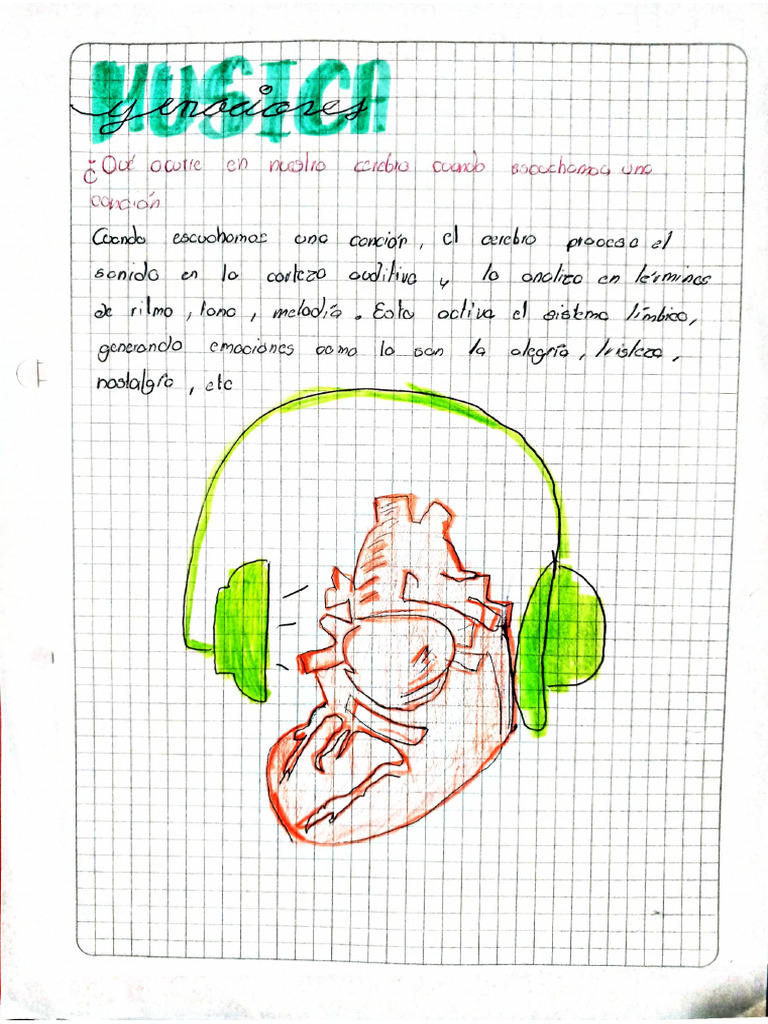 MUSICA
y emociones
¿Qué ocurre en nuestro cerebro cuando escuchamos una
canción
Cuando escuchamos una canción, el cerebro procesa el
sonido en la corteza auditiva y lo analiza en términos
de ritmo, tono, melodía. Esto activa el sistema límbico,
generando emociones como lo son la alegría, tristeza,
nostalgia, etc